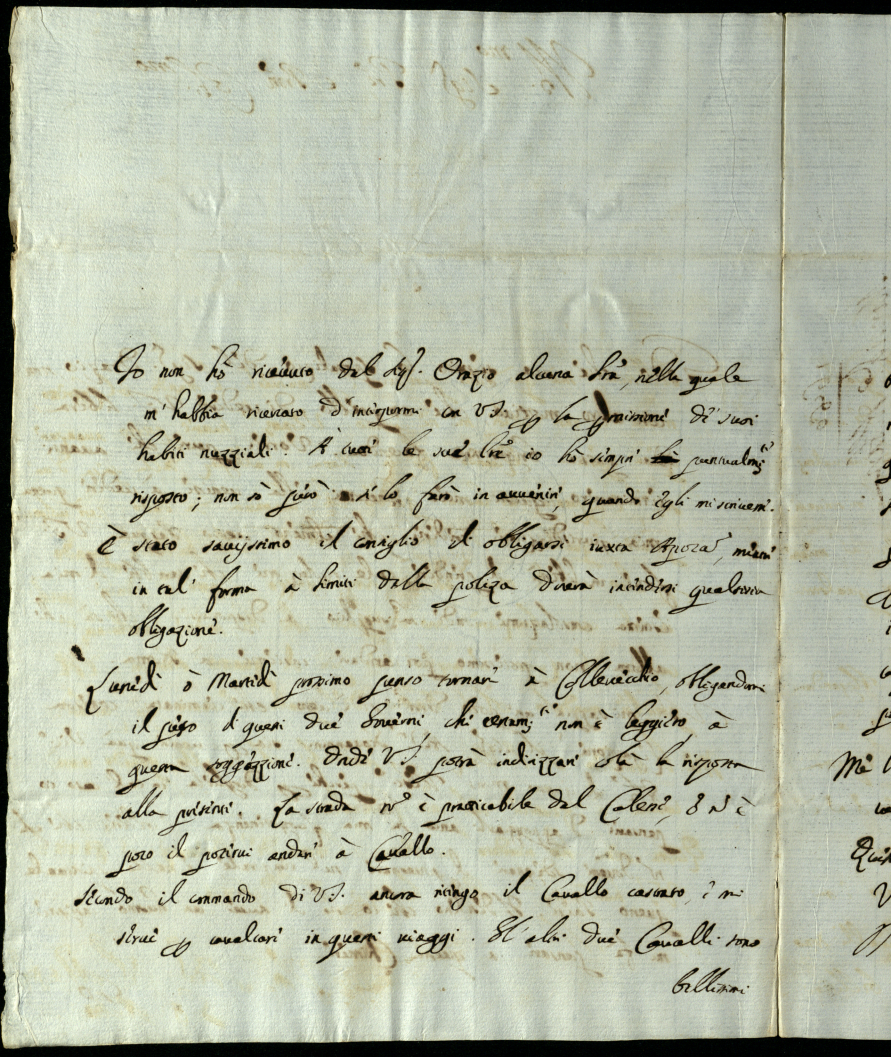 Io non hò riceuuto dal Sig.r Orazio alcuna lr̃a, nella quale
m'habbia ricercato d'incã con VS. ꝑ la ꝓuisione de' suoi
habiti nuzziali. A tutte le sue lr̃e io hò sempre puntualm.te
risposto; non sò però se lo farò in auuenire, quando egli mi scriuerà.
È stato sauissimo il consiglio di obligarsi iuxta Apoca,
in tal' forma à limiti della poliza douerà intendersi qualsiuia
obligazione.
Lunedì ò Martedì prossimo penso tornare à Colleuecchio, obligandomi
il peso di questi due Gouerni, che certam.te non è leggiero, à
questa soggezzione. Onde VS. potrà indirizzare colà la risposta
alla presente. La strada nõ è praticabile dal Calesse, e n'è
poco il potersi andare à Cauallo.
Secondo il commando di VS. ancora ritengo il Cauallo castrato, e mi
serue ꝑ caualcare in questi uiaggi. Gl'altri due Caualli sono
bellissimi